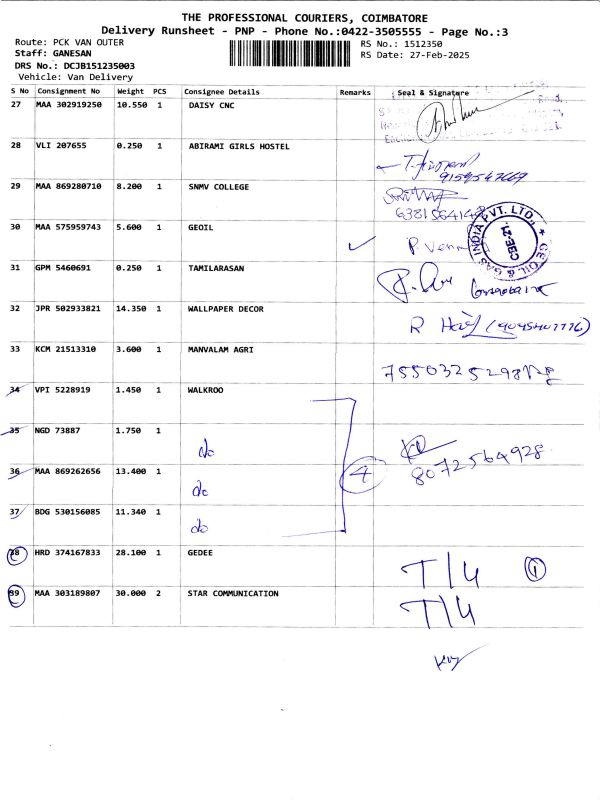 THE PROFESSIONAL COURIERS, COIMBATORE
Delivery Runsheet - PNP - Phone No.:0422-3505555 - Page No.:3
Route: PCK VAN OUTER RS No.: 1512350
Staff: GANESAN RS Date: 27-Feb-2025
DRS No.: DCJB151235003
Vehicle: Van Delivery
S No Consignment No Weight PCS Consignee Details Remarks Seal & Signature
27 MAA 302919250 10.550 1 DAISY CNC
28 VLI 207655 0.250 1 ABIRAMI GIRLS HOSTEL
9159547669
29 MAA 869280710 8.200 1 SNMV COLLEGE
30 MAA 575959743 5.600 1 GEOIL
GE OIL & GAS INDIA PVT. LTD.,
CBE-21.
31 GPM 5460691 0.250 1 TAMILARASAN
32 JPR 502933821 14.350 1 WALLPAPER DECOR
33 KCM 21513310 3.600 1 MANVALAM AGRI
7550325298
34 VPI 5228919 1.450 1 WALKROO
35 NGD 73887 1.750 1 do
8072564928
36 MAA 869262656 13.400 1 do 4
37 BDG 530156085 11.340 1 do
38 HRD 374167833 28.100 1 GEDEE T/4 1
39 MAA 303189807 30.000 2 STAR COMMUNICATION T/4